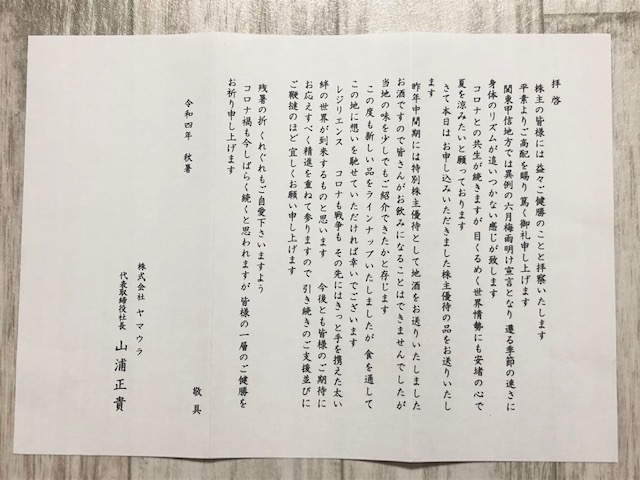 拝啓
株主の皆様には 益々ご健勝のことと拝察いたします
平素よりご高配を賜り 篤く御礼申し上げます
関東甲信地方では異例の六月梅雨明け宣言となり 遷る季節の速さに
身体のリズムが追いつかない感じが致します
コロナとの共生が続きますが 目くるめく世界情勢にも安堵の心で
夏を涼みたいと願っております
さて 本日は お申し込みいただきました株主優待の品をお送りいたし
ます
昨年中間期には特別株主優待として地酒をお送りいたしました
お酒ですので皆さんがお飲みになることはできませんでしたが
当地の味を少しでもご紹介できたかと存じます
この度も新しい品をラインナップいたしましたが 食を通して
この地に想いを馳せていただければ幸いでございます
レジリエンス コロナも戦争も その先にはきっと手を携えた太い
絆の世界が到来するものと思います 今後とも皆様のご期待に
お応えすべく精進を重ねて参りますので 引き続きのご支援並びに
ご鞭撻のほど宜しくお願い申し上げます
残暑の折 くれぐれもご自愛下さいますよう
コロナ禍も今しばらく続くと思われますが 皆様の一層のご健勝を
お祈り申し上げます
敬具
令和四年 秋暑
株式会社 ヤマウラ
代表取締役社長 山浦正貴